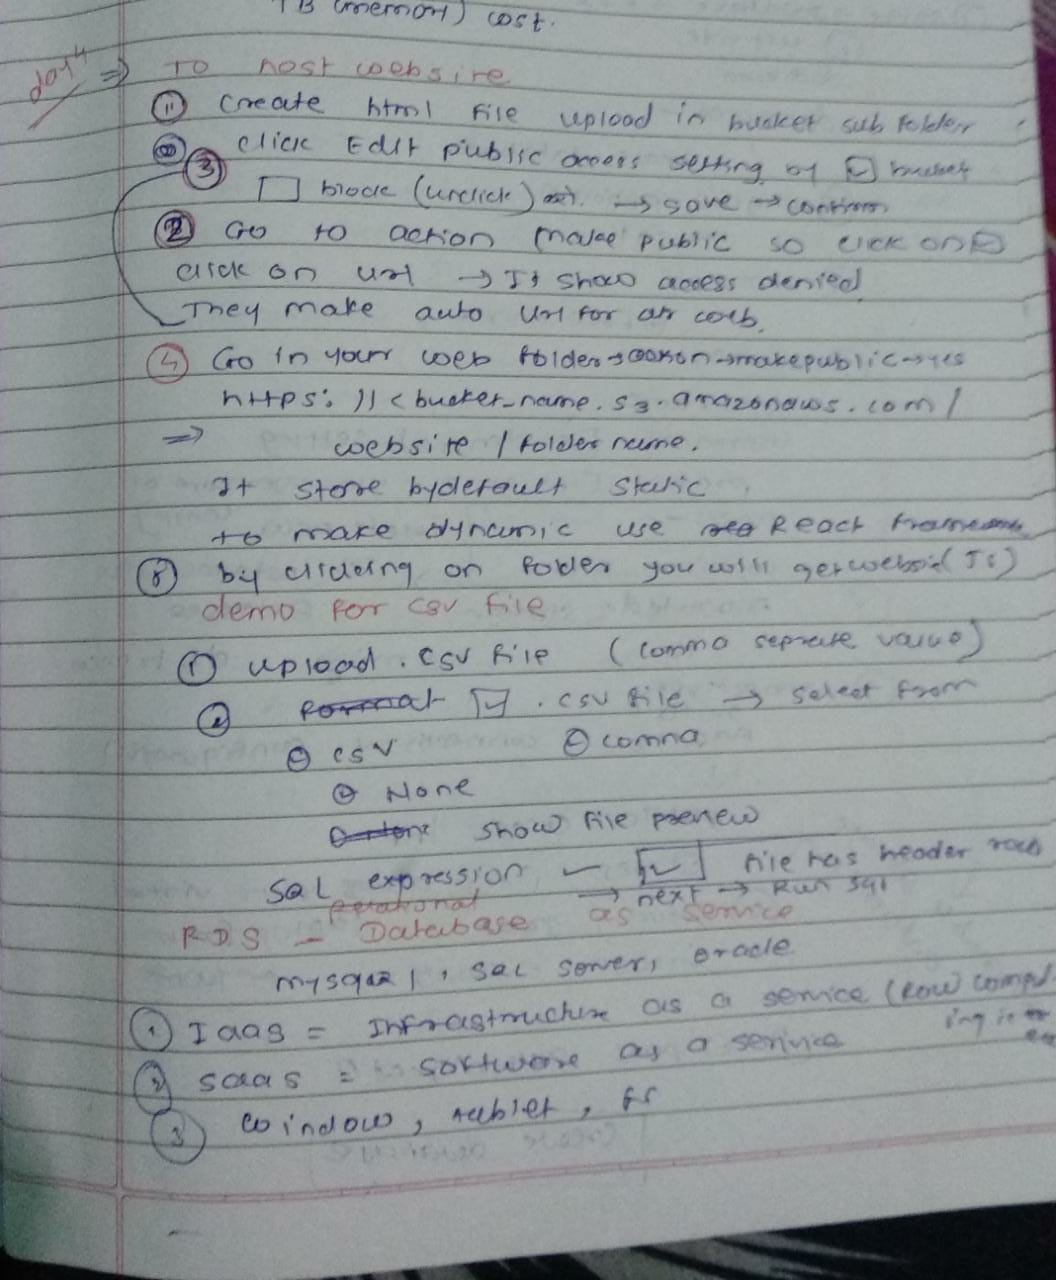 TB (memory) cost.
day 4 ⇒ To host website
① Create html file upload in bucket sub folder
click Edit public access setting of ☑ bucket
③ ☐ block (unclick) → save → confirm
② Go to action (make public so click on
click on url → It show access denied
They make auto url for web.
④ Go in your web folder → action → make public → yes
https://<bucket_name.s3.amazonaws.com/
⇒ website / folder name.
It store bydefault static
to make dynamic use React framework
⑤ by clicking on folder you will get website (Is)
demo for csv file
① upload .csv file (comma seprate value)
② format ☑ .csv file → select from
csv comma
None
show file preview
SQL expression – ☑ file has header row
→ next → Run sql
RDS – Database as service
mysql, SQL server, oracle
① Iaas = Infrastructure as a service (Row comput
ing
② saas = software as a service
③ window, tablet,